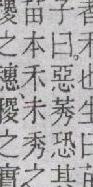 禾也生曰
子曰惡莠恐其
苗本禾未秀之
稷之穗稷之